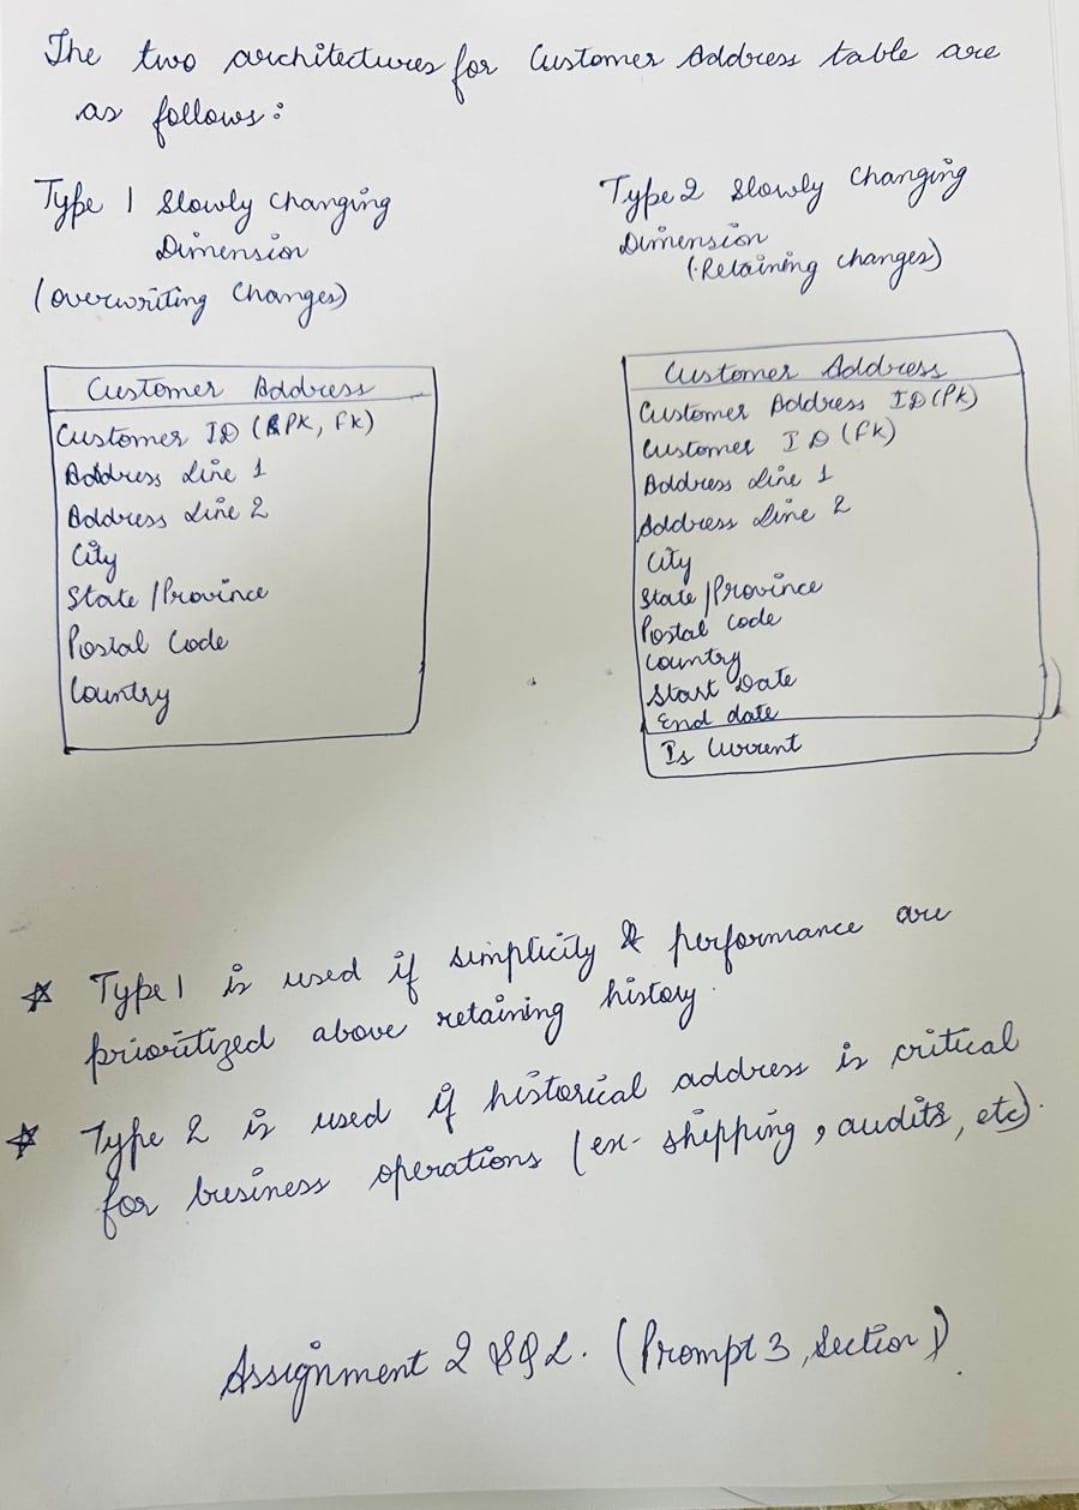 The two architectures for Customer Address table are
as follows:
Type 1 Slowly Changing
Dimension
(Overwriting Changes)
Type 2 Slowly Changing
Dimension
(Retaining changes)
Customer Address
Customer ID (PK, FK)
Address Line 1
Address Line 2
City
State/Province
Postal Code
Country
Customer Address
Customer Address ID (PK)
Customer ID (FK)
Address Line 1
Address Line 2
City
State/Province
Postal code
Country
Start Date
End date
Is Current
* Type 1 is used if simplicity & performance are
prioritized above retaining history.
* Type 2 is used if historical address is critical
for business operations (ex- shipping, audits, etc).
Assignment 2 SQL. (Prompt 3, Section 1).